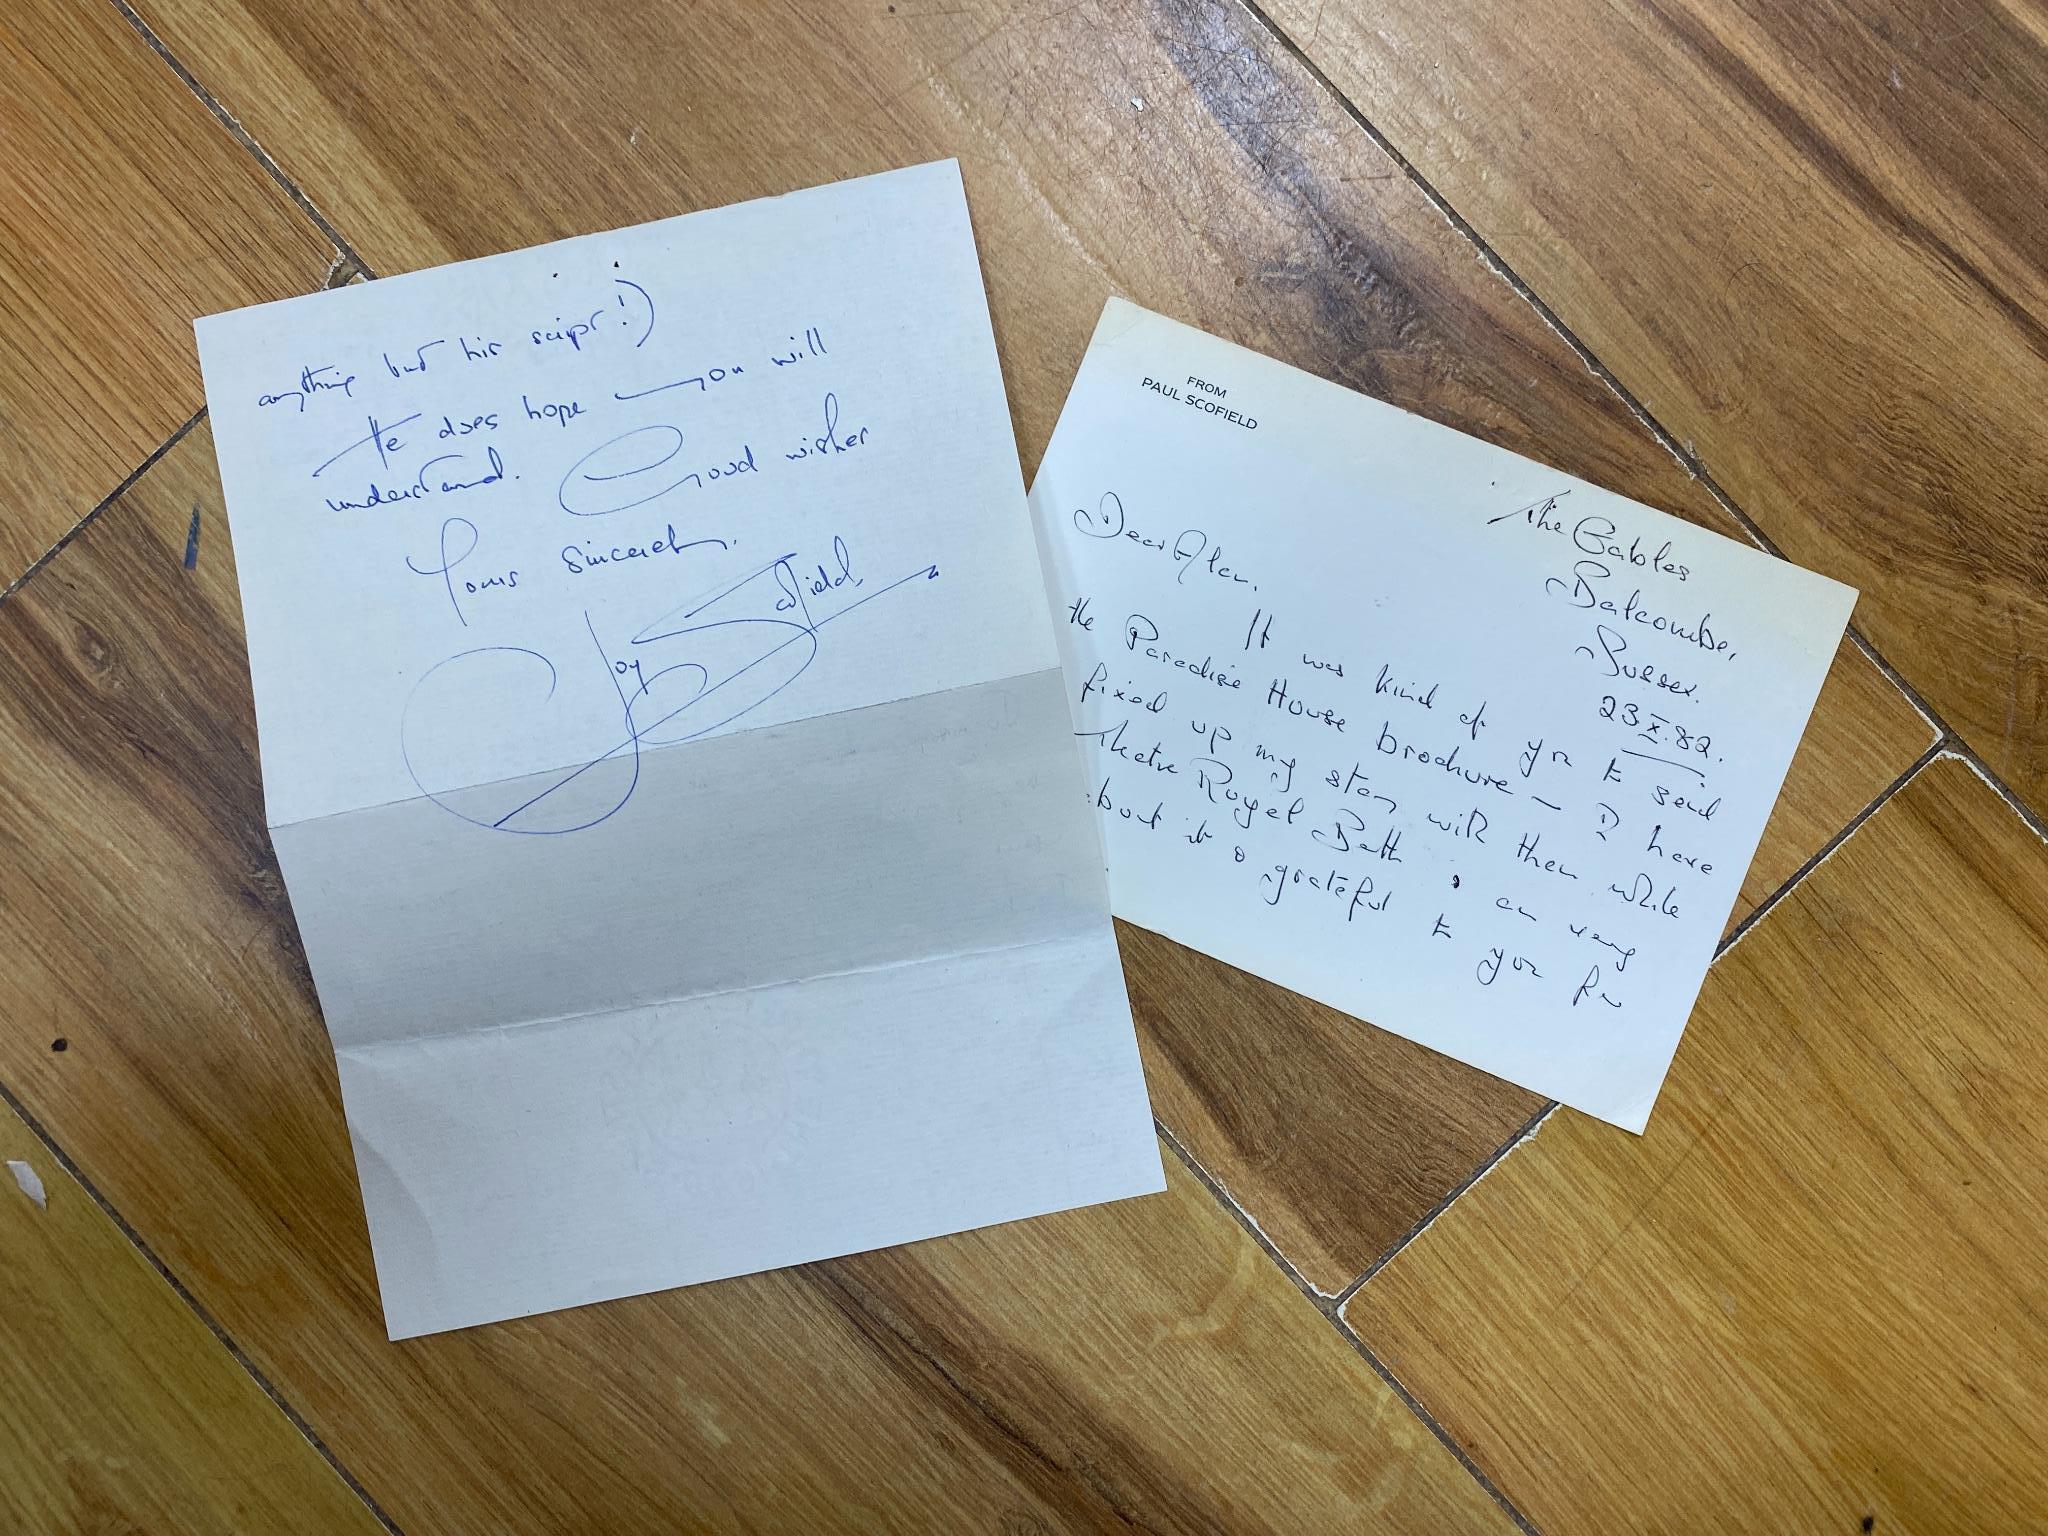 anything but his script!)
He does hope you will
understand. Good wishes
Yours sincerely,
Joy Scofield,
FROM
PAUL SCOFIELD
The Gables
Balcombe,
Sussex.
23.X.82.
Dear Alan,
It was kind of you to send
the Paradise House brochure – I have
fixed up my stay with them while
Theatre Royal Bath am very
about it & grateful to you for